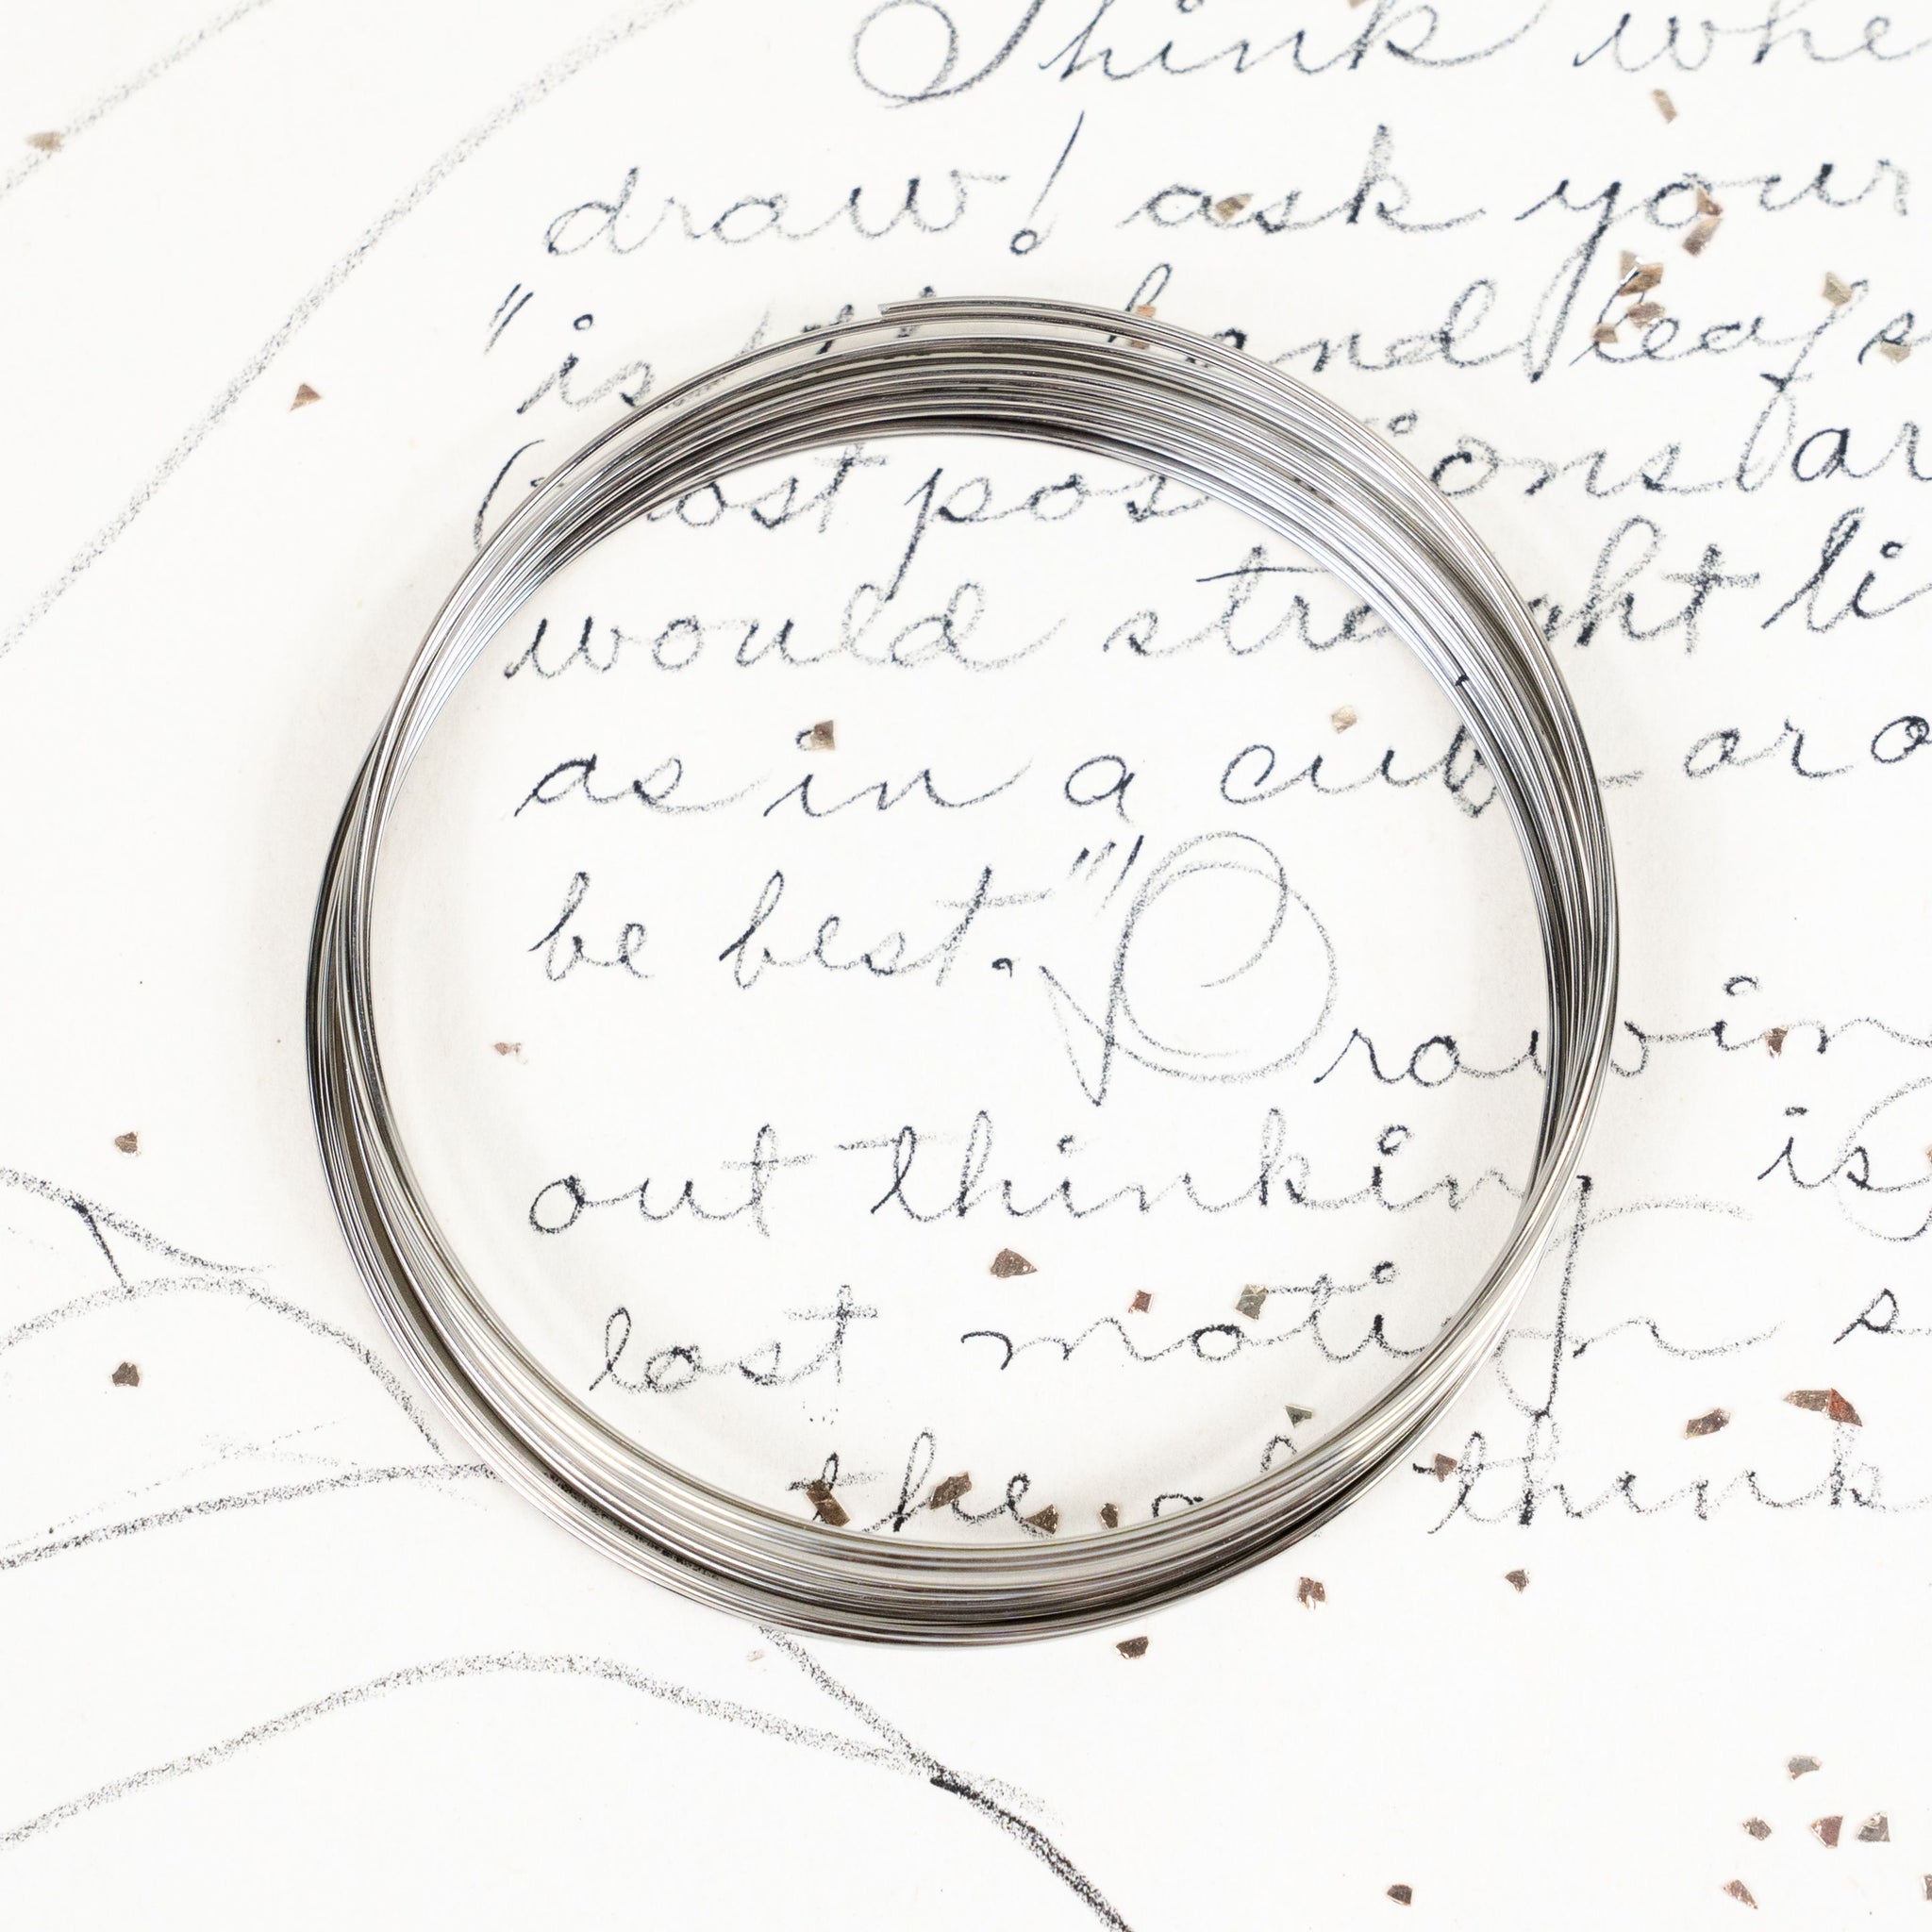 Think whe
draw! ask your
"is hand leaf s
(most pos ions ar
would straight li
as in a cube or o
be best."
Drawin
out thinking is
lost motion s
the think